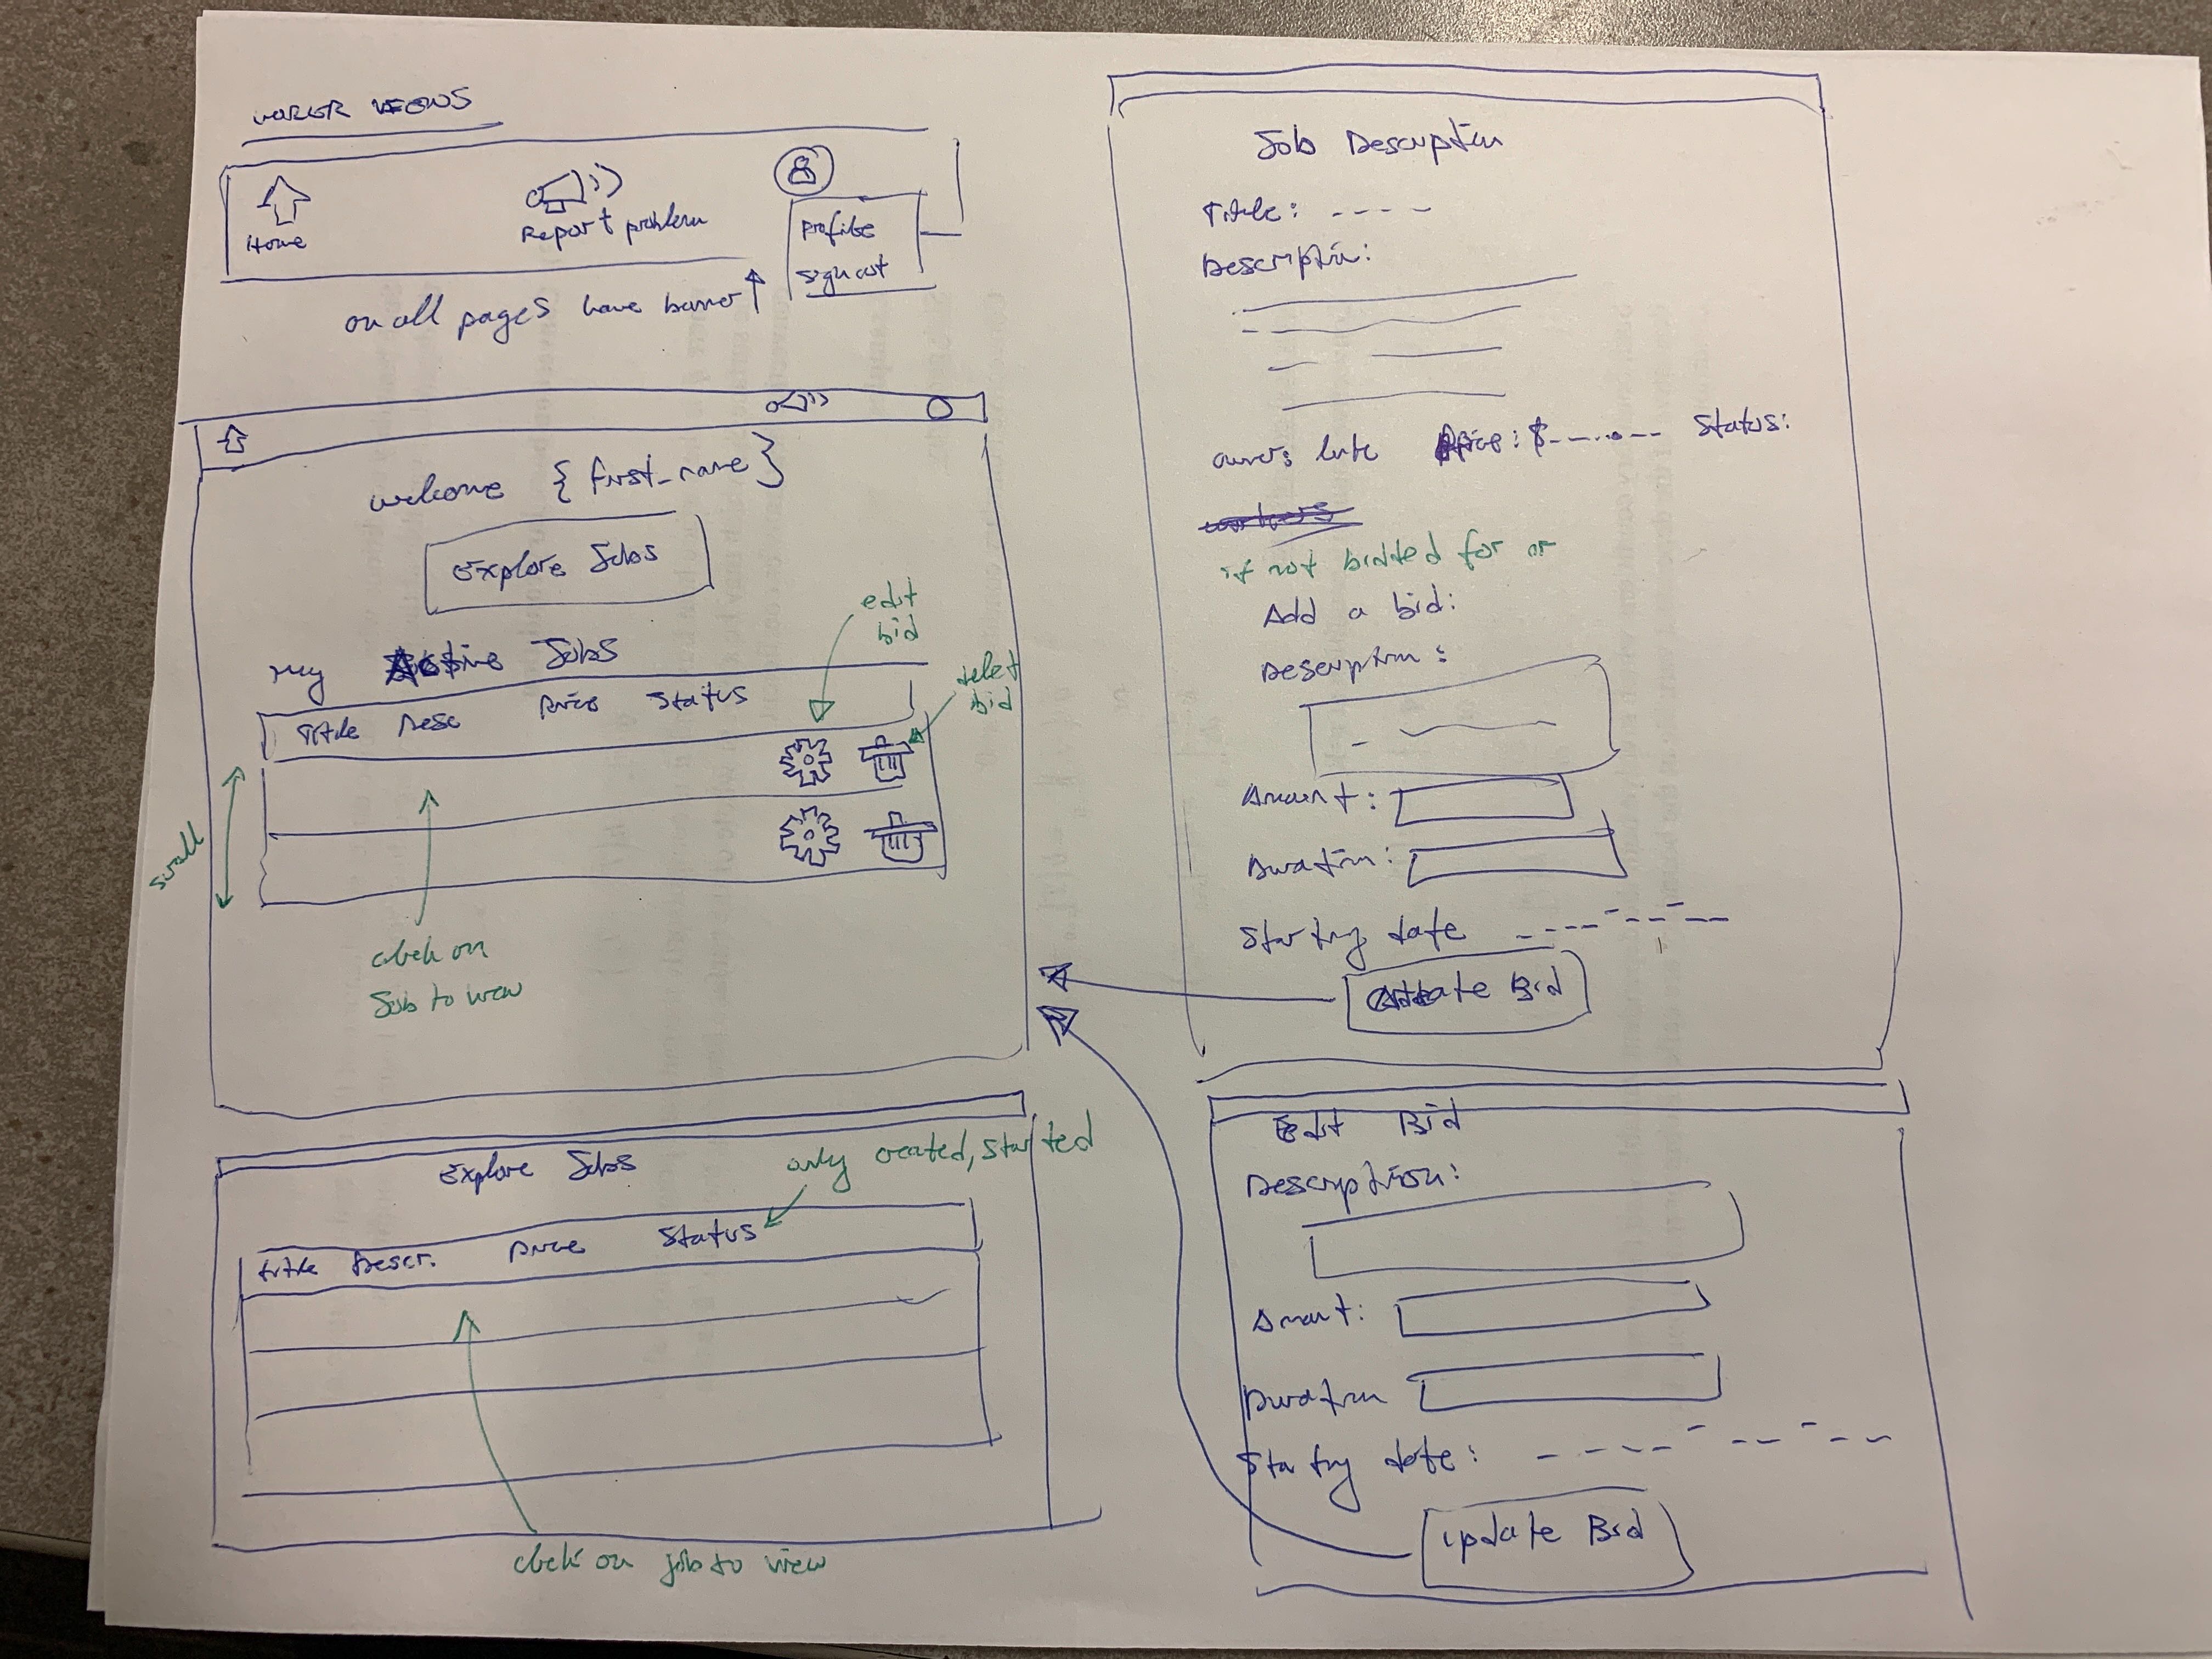 WORKER VIEWS
Home
Report problem
Profile
Sign out
on all pages have banner
welcome {first_name}
Explore Jobs
edit
bid
My Active Jobs
delet
bid
Title Desc Price Status
scroll
click on
Job to view
Explore Jobs
only created, started
title Descr. price Status
click on job to view
Job Description
Title: ----
Description:
owners Price: $------- Status:
if not bidded for or
Add a bid:
Description:
Amount:
Duration:
Starting date ---- -- --
Create Bid
Edit Bid
Description:
Amount:
Duration
Starting date: ---- -- --
Update Bid